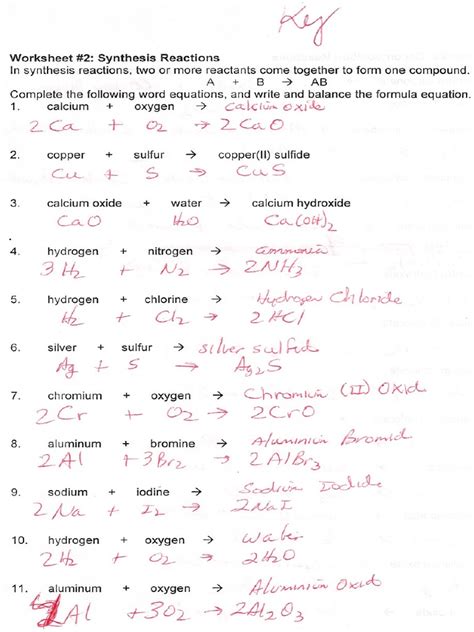 Key
Worksheet #2: Synthesis Reactions
In synthesis reactions, two or more reactants come together to form one compound.
A + B → AB
Complete the following word equations, and write and balance the formula equation.
1. calcium + oxygen → Calcium oxide
2 Ca + O2 → 2 CaO
2. copper + sulfur → copper(II) sulfide
Cu + S → CuS
3. calcium oxide + water → calcium hydroxide
CaO H2O Ca(OH)2
4. hydrogen + nitrogen → ammonia
3 H2 + N2 → 2NH3
5. hydrogen + chlorine → Hydrogen Chloride
H2 + Cl2 → 2 HCl
6. silver + sulfur → silver sulfide
Ag + S → Ag2S
7. chromium + oxygen → Chromium (II) Oxid
2Cr + O2 → 2CrO
8. aluminum + bromine → Aluminium Bromid
2 Al + 3Br2 → 2 AlBr3
9. sodium + iodine → Sodium Iodide
2 Na + I2 → 2NaI
10. hydrogen + oxygen → water
2H2 + O2 → 2H2O
11. aluminum + oxygen → Aluminium Oxid
Al + 3O2 → 2Al2O3